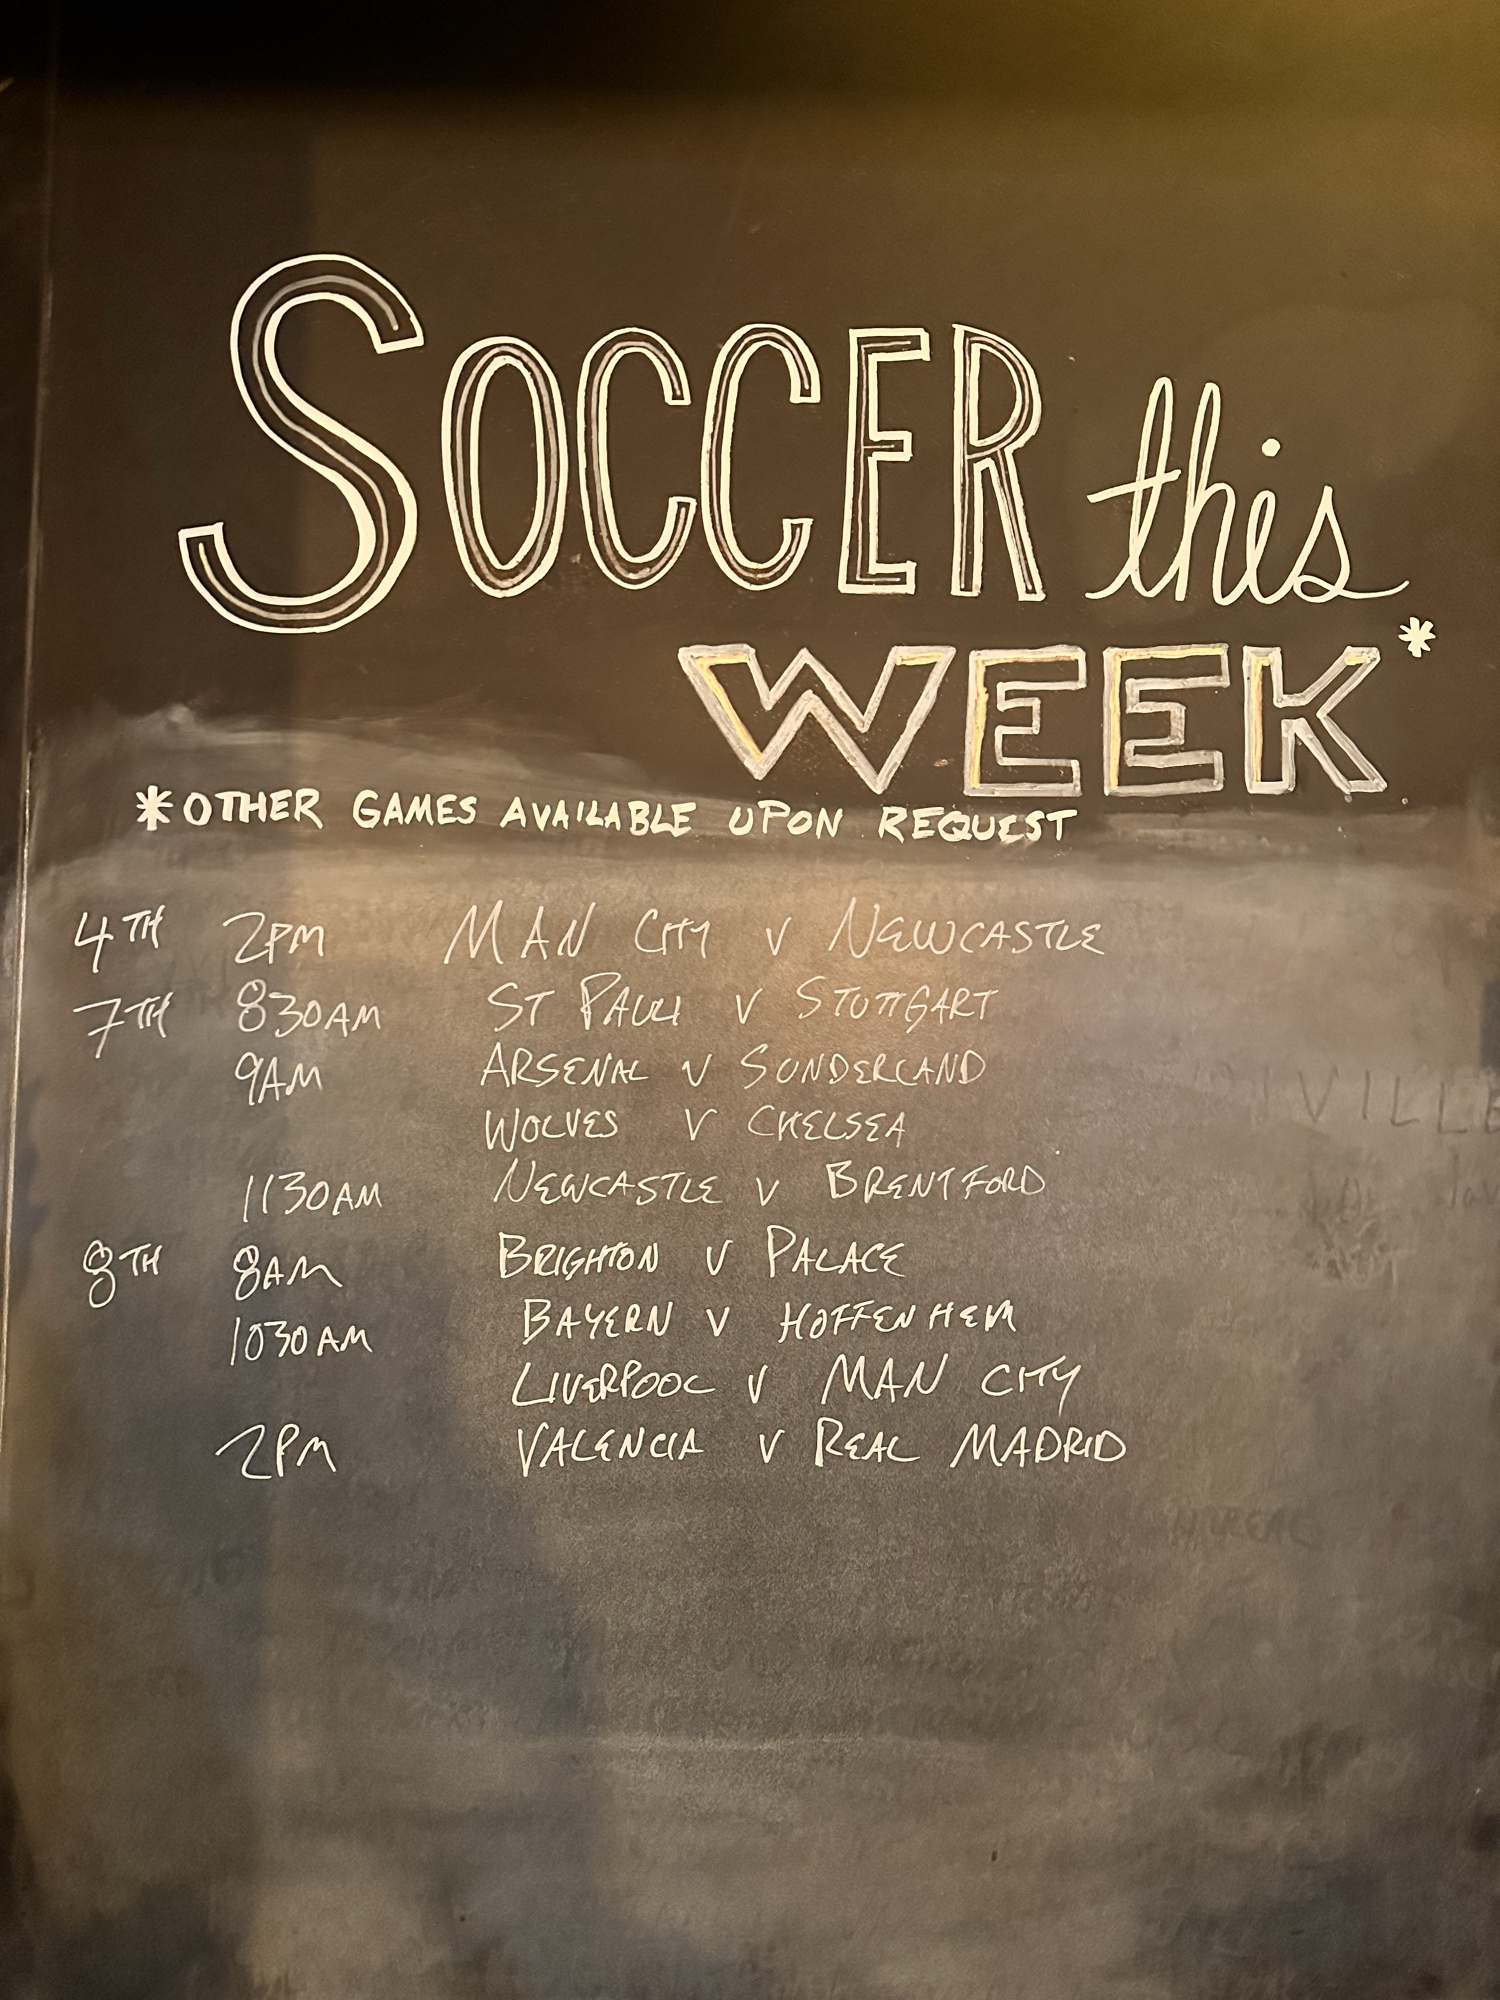 SOCCER this
WEEK*
*OTHER GAMES AVAILABLE UPON REQUEST
4TH 2PM MAN CITY V NEWCASTLE
7TH 830AM ST PAULI V STUTTGART
9AM ARSENAL V SUNDERLAND
WOLVES V CHELSEA
1130AM NEWCASTLE V BRENTFORD
8TH 8AM BRIGHTON V PALACE
1030AM BAYERN V HOFFENHEIM
LIVERPOOL V MAN CITY
2PM VALENCIA V REAL MADRID